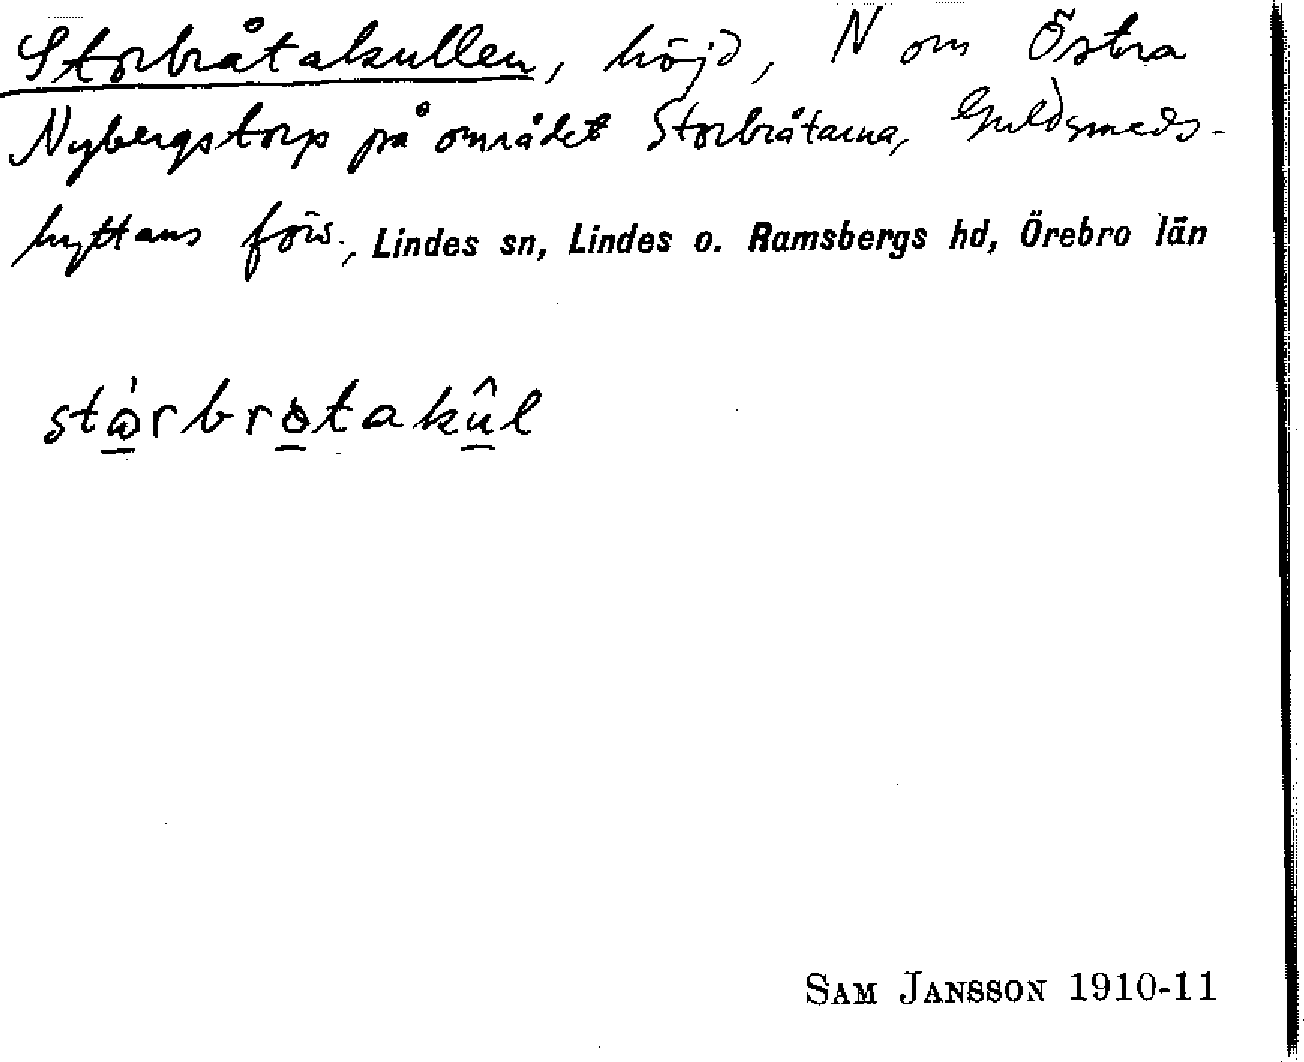 Storbråtakullen, höjd, N om Östra
Nybergstorp på området Storbråtarna, Guldsmeds-
hyttans förs., Lindes sn, Lindes o. Ramsbergs hd, Örebro län
SAM JANSSON 1910-11